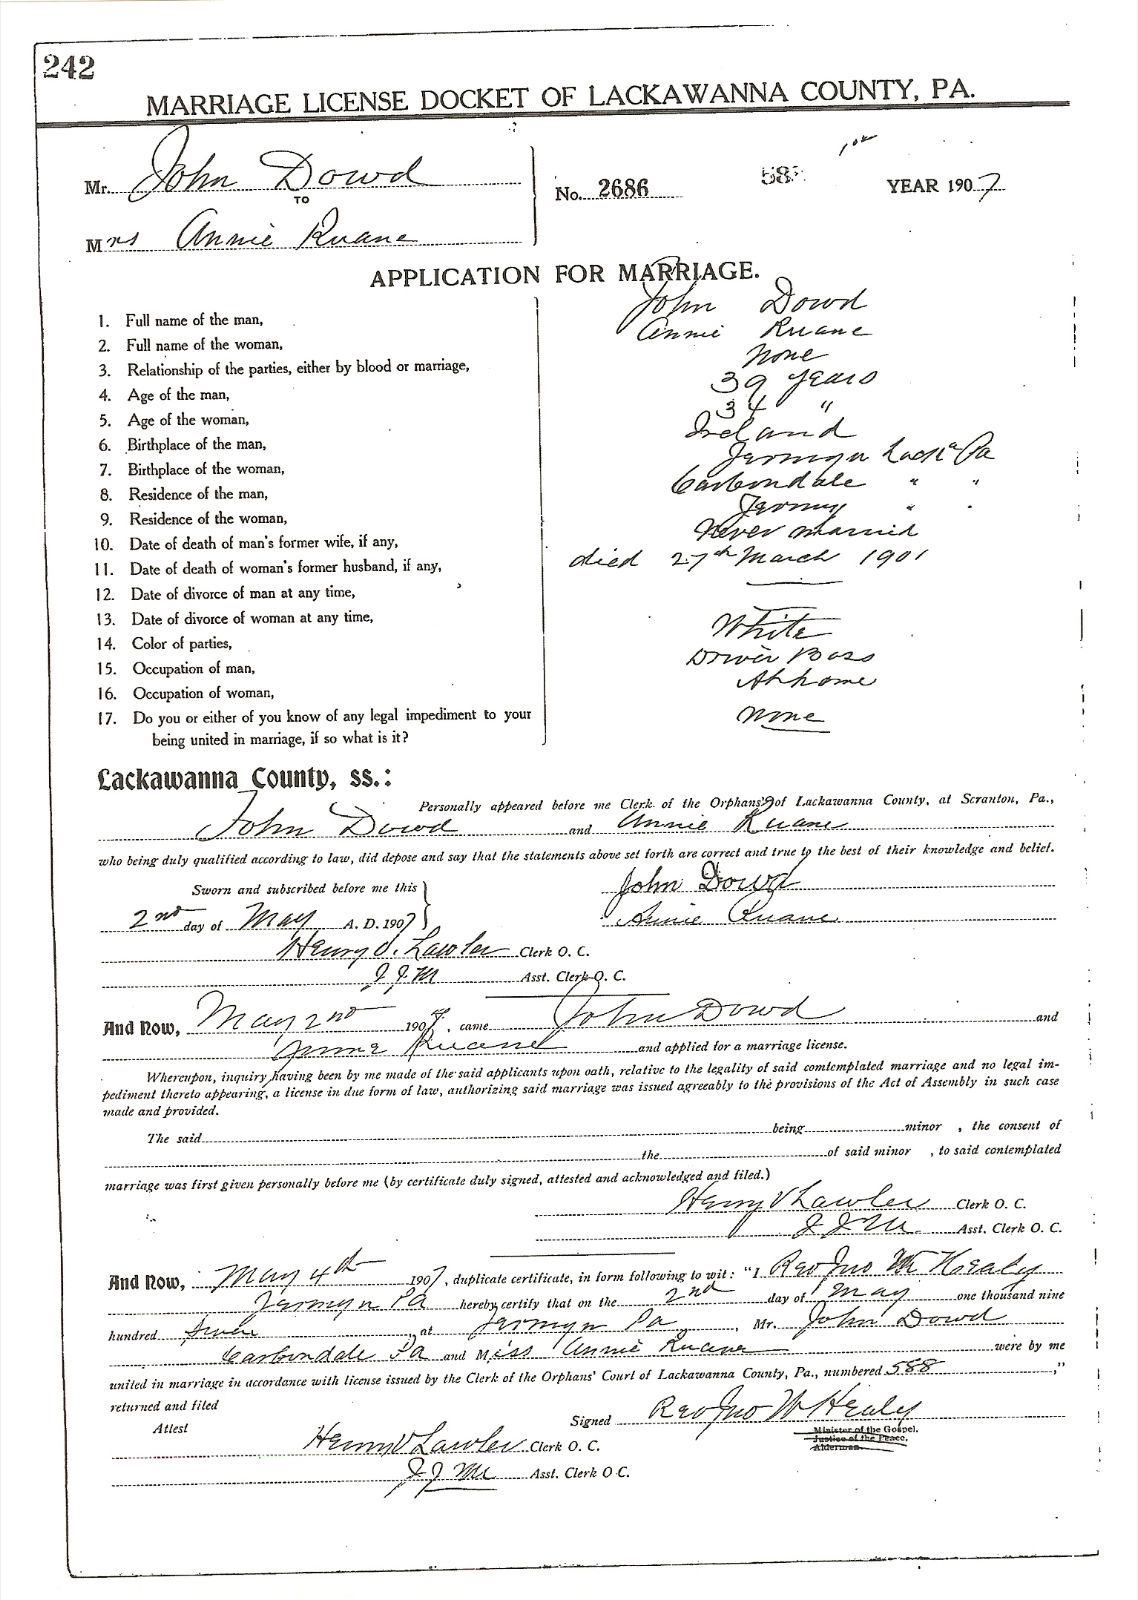 242
MARRIAGE LICENSE DOCKET OF LACKAWANNA COUNTY, PA.
Mr. John Dowd
TO
Mrs Annie Ruane
No. 2686
YEAR 1907
APPLICATION FOR MARRIAGE.
1. Full name of the man, John Dowd
2. Full name of the woman, Annie Ruane
3. Relationship of the parties, either by blood or marriage, None
4. Age of the man, 39 years
5. Age of the woman, 34 "
6. Birthplace of the man, Ireland
7. Birthplace of the woman, Jermyn Lack'a Pa
8. Residence of the man, Carbondale " "
9. Residence of the woman, Jermyn " "
10. Date of death of man's former wife, if any, Never married
11. Date of death of woman's former husband, if any, died 27th March 1901
12. Date of divorce of man at any time,
13. Date of divorce of woman at any time,
14. Color of parties, White
15. Occupation of man, Driver Boss
16. Occupation of woman, At home
17. Do you or either of you know of any legal impediment to your none
being united in marriage, if so what is it?
Lackawanna County, ss.:
Personally appeared before me Clerk of the Orphans' of Lackawanna County, at Scranton, Pa.,
John Dowd and Annie Ruane
who being duly qualified according to law, did depose and say that the statements above set forth are correct and true to the best of their knowledge and belief.
Sworn and subscribed before me this John Dowd
2nd day of May A. D. 1907 Annie Ruane
Henry V. Lawler Clerk O. C.
J. J. M Asst. Clerk O. C.
And Now, May 2nd 1907, came John Dowd and
Annie Ruane and applied for a marriage license.
Whereupon, inquiry having been by me made of the said applicants upon oath, relative to the legality of said comtemplated marriage and no legal im-
pediment thereto appearing, a license in due form of law, authorizing said marriage was issued agreeably to the provisions of the Act of Assembly in such case
made and provided.
The said being minor , the consent of
the of said minor , to said contemplated
marriage was first given personally before me (by certificate duly signed, attested and acknowledged and filed.)
Henry V Lawler Clerk O. C.
J. J. M. Asst. Clerk O. C.
And Now, May 4th 1907, duplicate certificate, in form following to wit: "I Rev Jno W Healy
Jermyn Pa hereby certify that on the 2nd day of May one thousand nine
hundred Seven at Jermyn Pa, Mr. John Dowd
Carbondale Pa and Miss Annie Ruane were by me
united in marriage in accordance with license issued by the Clerk of the Orphans' Court of Lackawanna County, Pa., numbered 588 ,"
returned and filed
Attest
Signed Rev Jno W Healy
Minister of the Gospel.
Justice of the Peace.
Alderman.
Henry V Lawler Clerk O. C.
J J M Asst. Clerk O C.